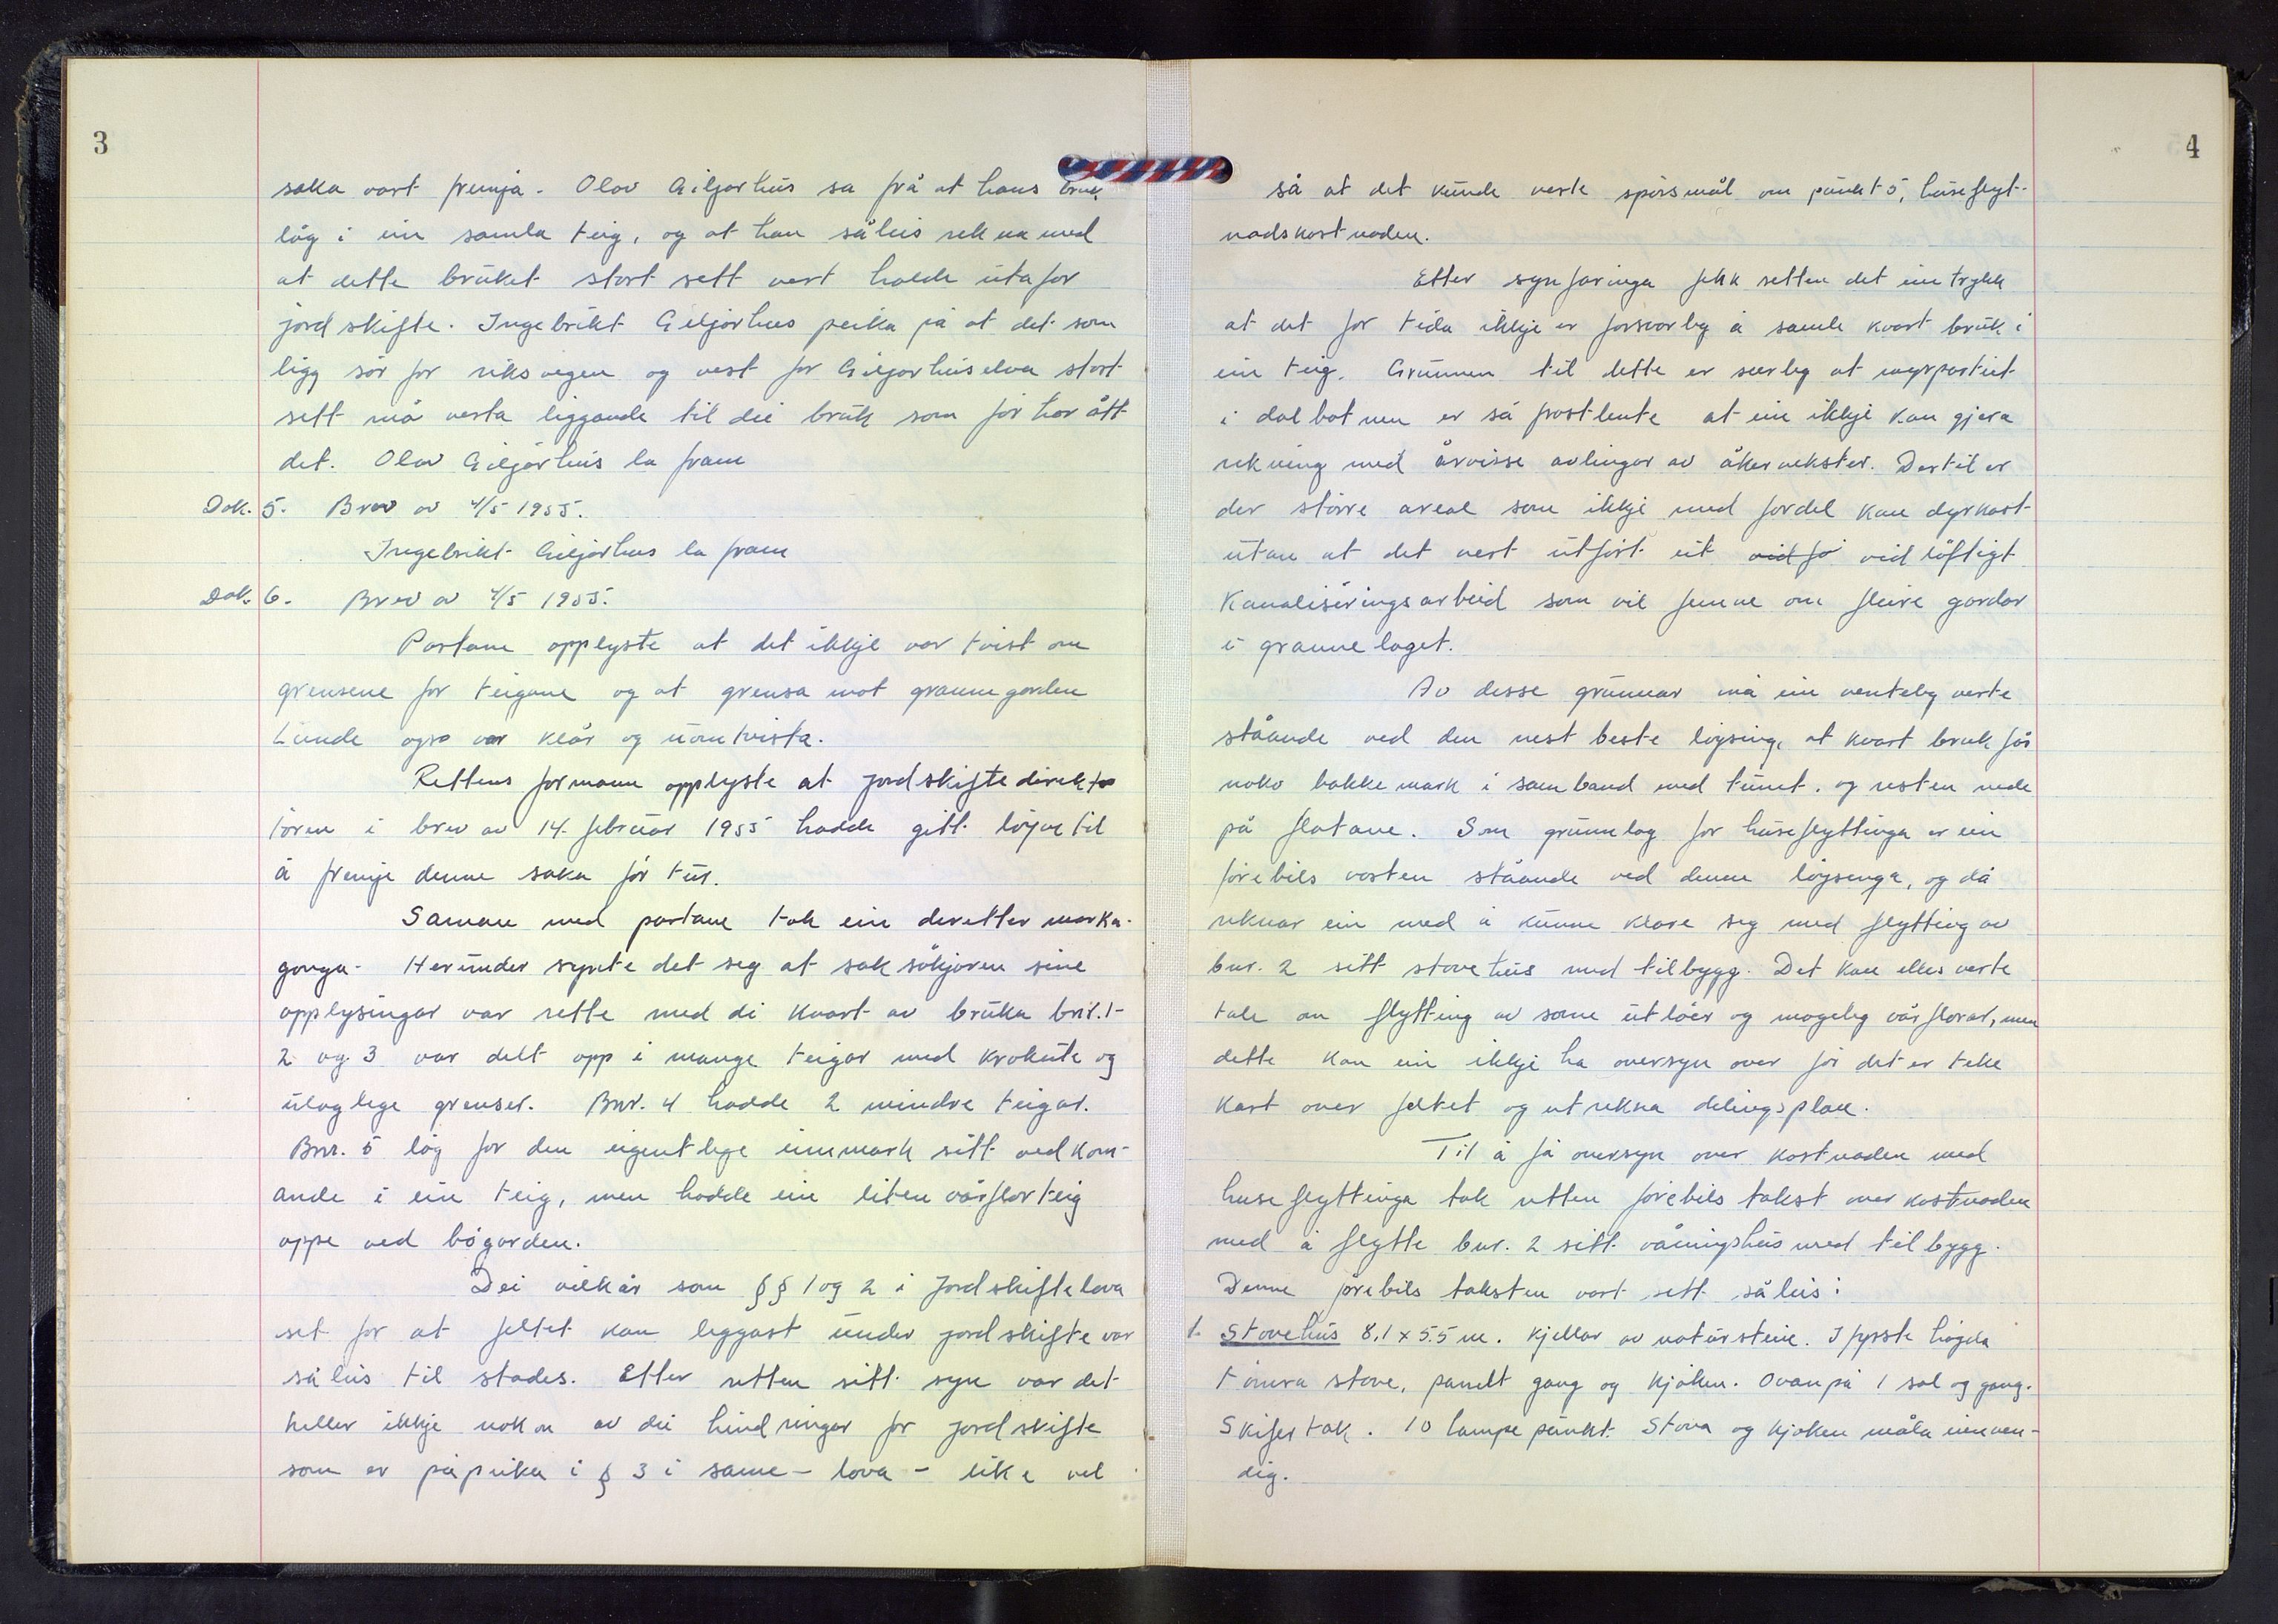 3
saka vart fremja. Olav Giljarhus sa frå at hans bruk
låg i ein samla teig, og at han såleis rekna med
at dette bruket stort sett vert halde utafor
jordskifte. Ingebrikt Giljarhus peika på at det som
ligg sør for riksvegen og vest for Giljarhuselva stort
sett må verta liggande til dei bruk som før har ått
det. Olav Giljarhus la fram
Dok. 5. Brev av 4/5 1955.
Ingebrikt Giljarhus la fram
Dok. 6. Brev av 4/5 1955.
Partane opplyste at det ikkje var tvist om
grensene for teigane og at grensa mot granngarden
Lunde også var klår og uomtvista.
Rettens formann opplyste at jordskiftedirektø
tøren i brev av 14. februar 1955 hadde gitt løyve til
å fremje denne saka før tur.
Saman med partane tok ein deretter marka-
gonga. Herunder synte det seg at saksøkjaren sine
opplysingar var rette med di kvart av bruka bnr. 1-
2 og 3 var delt opp i mange teigar med krokute og
ulaglege grenser. Bnr. 4 hadde 2 mindre teigar.
Bnr. 5 låg for den eigentlege innmark sitt vedkom-
ande i ein teig, men hadde ein liten vårflorteig
oppe ved bøgarden.
Dei vilkår som §§ 1 og 2 i Jordskiftelova
set for at feltet kan leggast under jordskifte var
såleis til stades. Etter retten sitt syn var det
heller ikkje nokon av dei hindringar for jordskifte
som er påpeika i § 3 i same - lova - like vel
4
så at det kunde verte spørsmål om punkt 5, huseflyt-
nadskostnaden.
Etter synfaringa fekk retten det inntrykk
at det for tida ikkje er forsvarleg å samle kvart bruk i
ein teig. Grunnen til dette er særleg at myrpartiet
i dalbotnen er så frostlente at ein ikkje kan gjera
rekning med årvisse avlingar av åkervekster. Dertil er
der større areal som ikkje med fordel kan dyrkast
utan at det vert utført eit vidfø vidløftigt
Kanaliseringsarbeid som vil femne om fleire gardar
i grannelaget.
Av desse grunnar må ein venteleg verte
ståande ved den nest beste løysing, at kvart bruk får
noko bakkemark i samband med tunet. og resten nede
på flatane. Som grunnlag for huseflyttinga er ein
førebils vorten ståande ved denne løysinga, og då
reknar ein med å kunne klare seg med flytting av
bnr. 2 sitt stovehus med tilbygg. Det kan elles verte
tale om flytting av some utløer og mogeleg vårflorar, men
dette kan ein ikkje ha oversyn over før det er teke
Kart over feltet og utrekna delingsplan.
Til å få oversyn over kostnaden med
huseflyttinga tok retten førebils takst over kostnaden
med å flytte bnr. 2 sitt våningshus med tilbygg.
Denne førebils taksten vart sett såleis:
1. Stovehus 8,1 x 5.5 m. Kjellar av naturstein. I fyrste høgda
tømra stove, panelt gang og kjøken. Ovanpå 1 sal og gang.
Skifertak. 10 lampepunkt. Stova og kjøken måla innven-
dig.